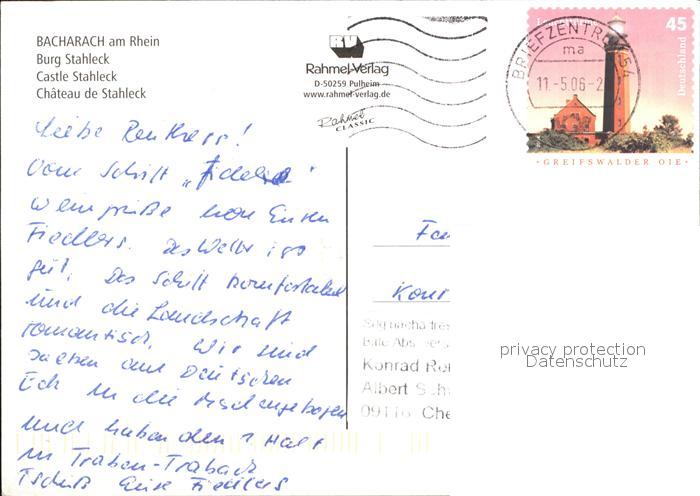 BACHARACH am Rhein
Burg Stahleck
Castle Stahleck
Château de Stahleck
RV
Rahmel-Verlag
D-50259 Pulheim
www.rahmel-verlag.de
Rahmel
CLASSIC
BRIEFZENTRUM 54
ma
11.-5.06-2
45
Deutschland
GREIFSWALDER OIE
Liebe
Vom Schiff "Fidelio"
Weingrüße von Euren
Fiedlers. Das Wetter ist
gut, Das Schiff komfortabel
und die Landschaft
romantisch. Wir sind
soeben am Deutschen
Eck in die Mosel eingebogen
und haben den 1. Halt
in Traben-Trabach
Tschüß Eure Fiedlers
Fa
Konr
Konrad Re
Albert Sch
09116 Che
privacy protection
Datenschutz